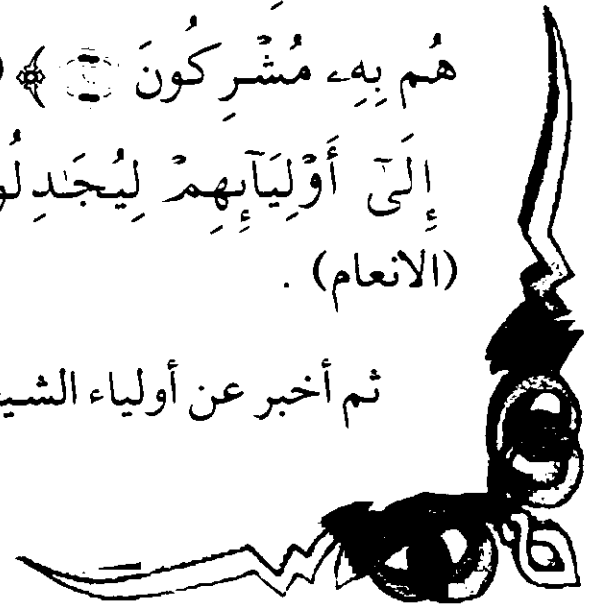 هُم بِهِۦ مُشْرِكُونَ ﴾ (
إِلَىٰٓ أَوْلِيَآئِهِمْ لِيُجَٰدِلُو
(الانعام) .
ثم أخبر عن أولياء الشي